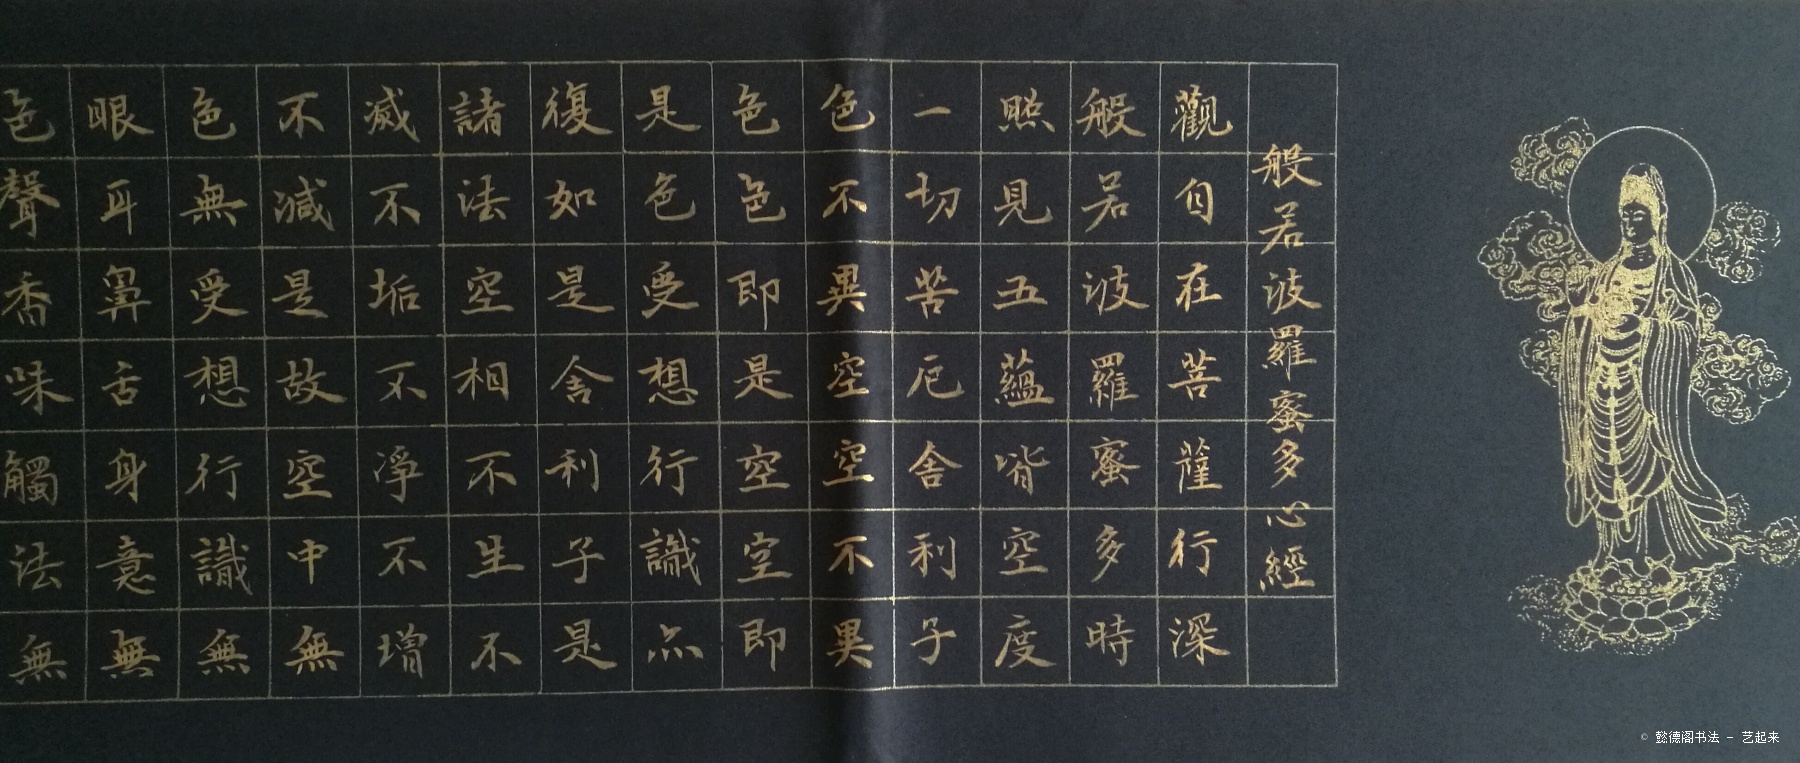 般若波羅蜜多心經
觀自在菩薩行深
般若波羅蜜多時
照見五蘊皆空度
一切苦厄舍利子
色不異空空不異
色色即是空空即
是色受想行識亦
復如是舍利子是
諸法空相不生不
滅不垢不淨不增
不減是故空中無
色無受想行識無
眼耳鼻舌身意無
色聲香味觸法無
© 懿德阁书法 - 艺起来